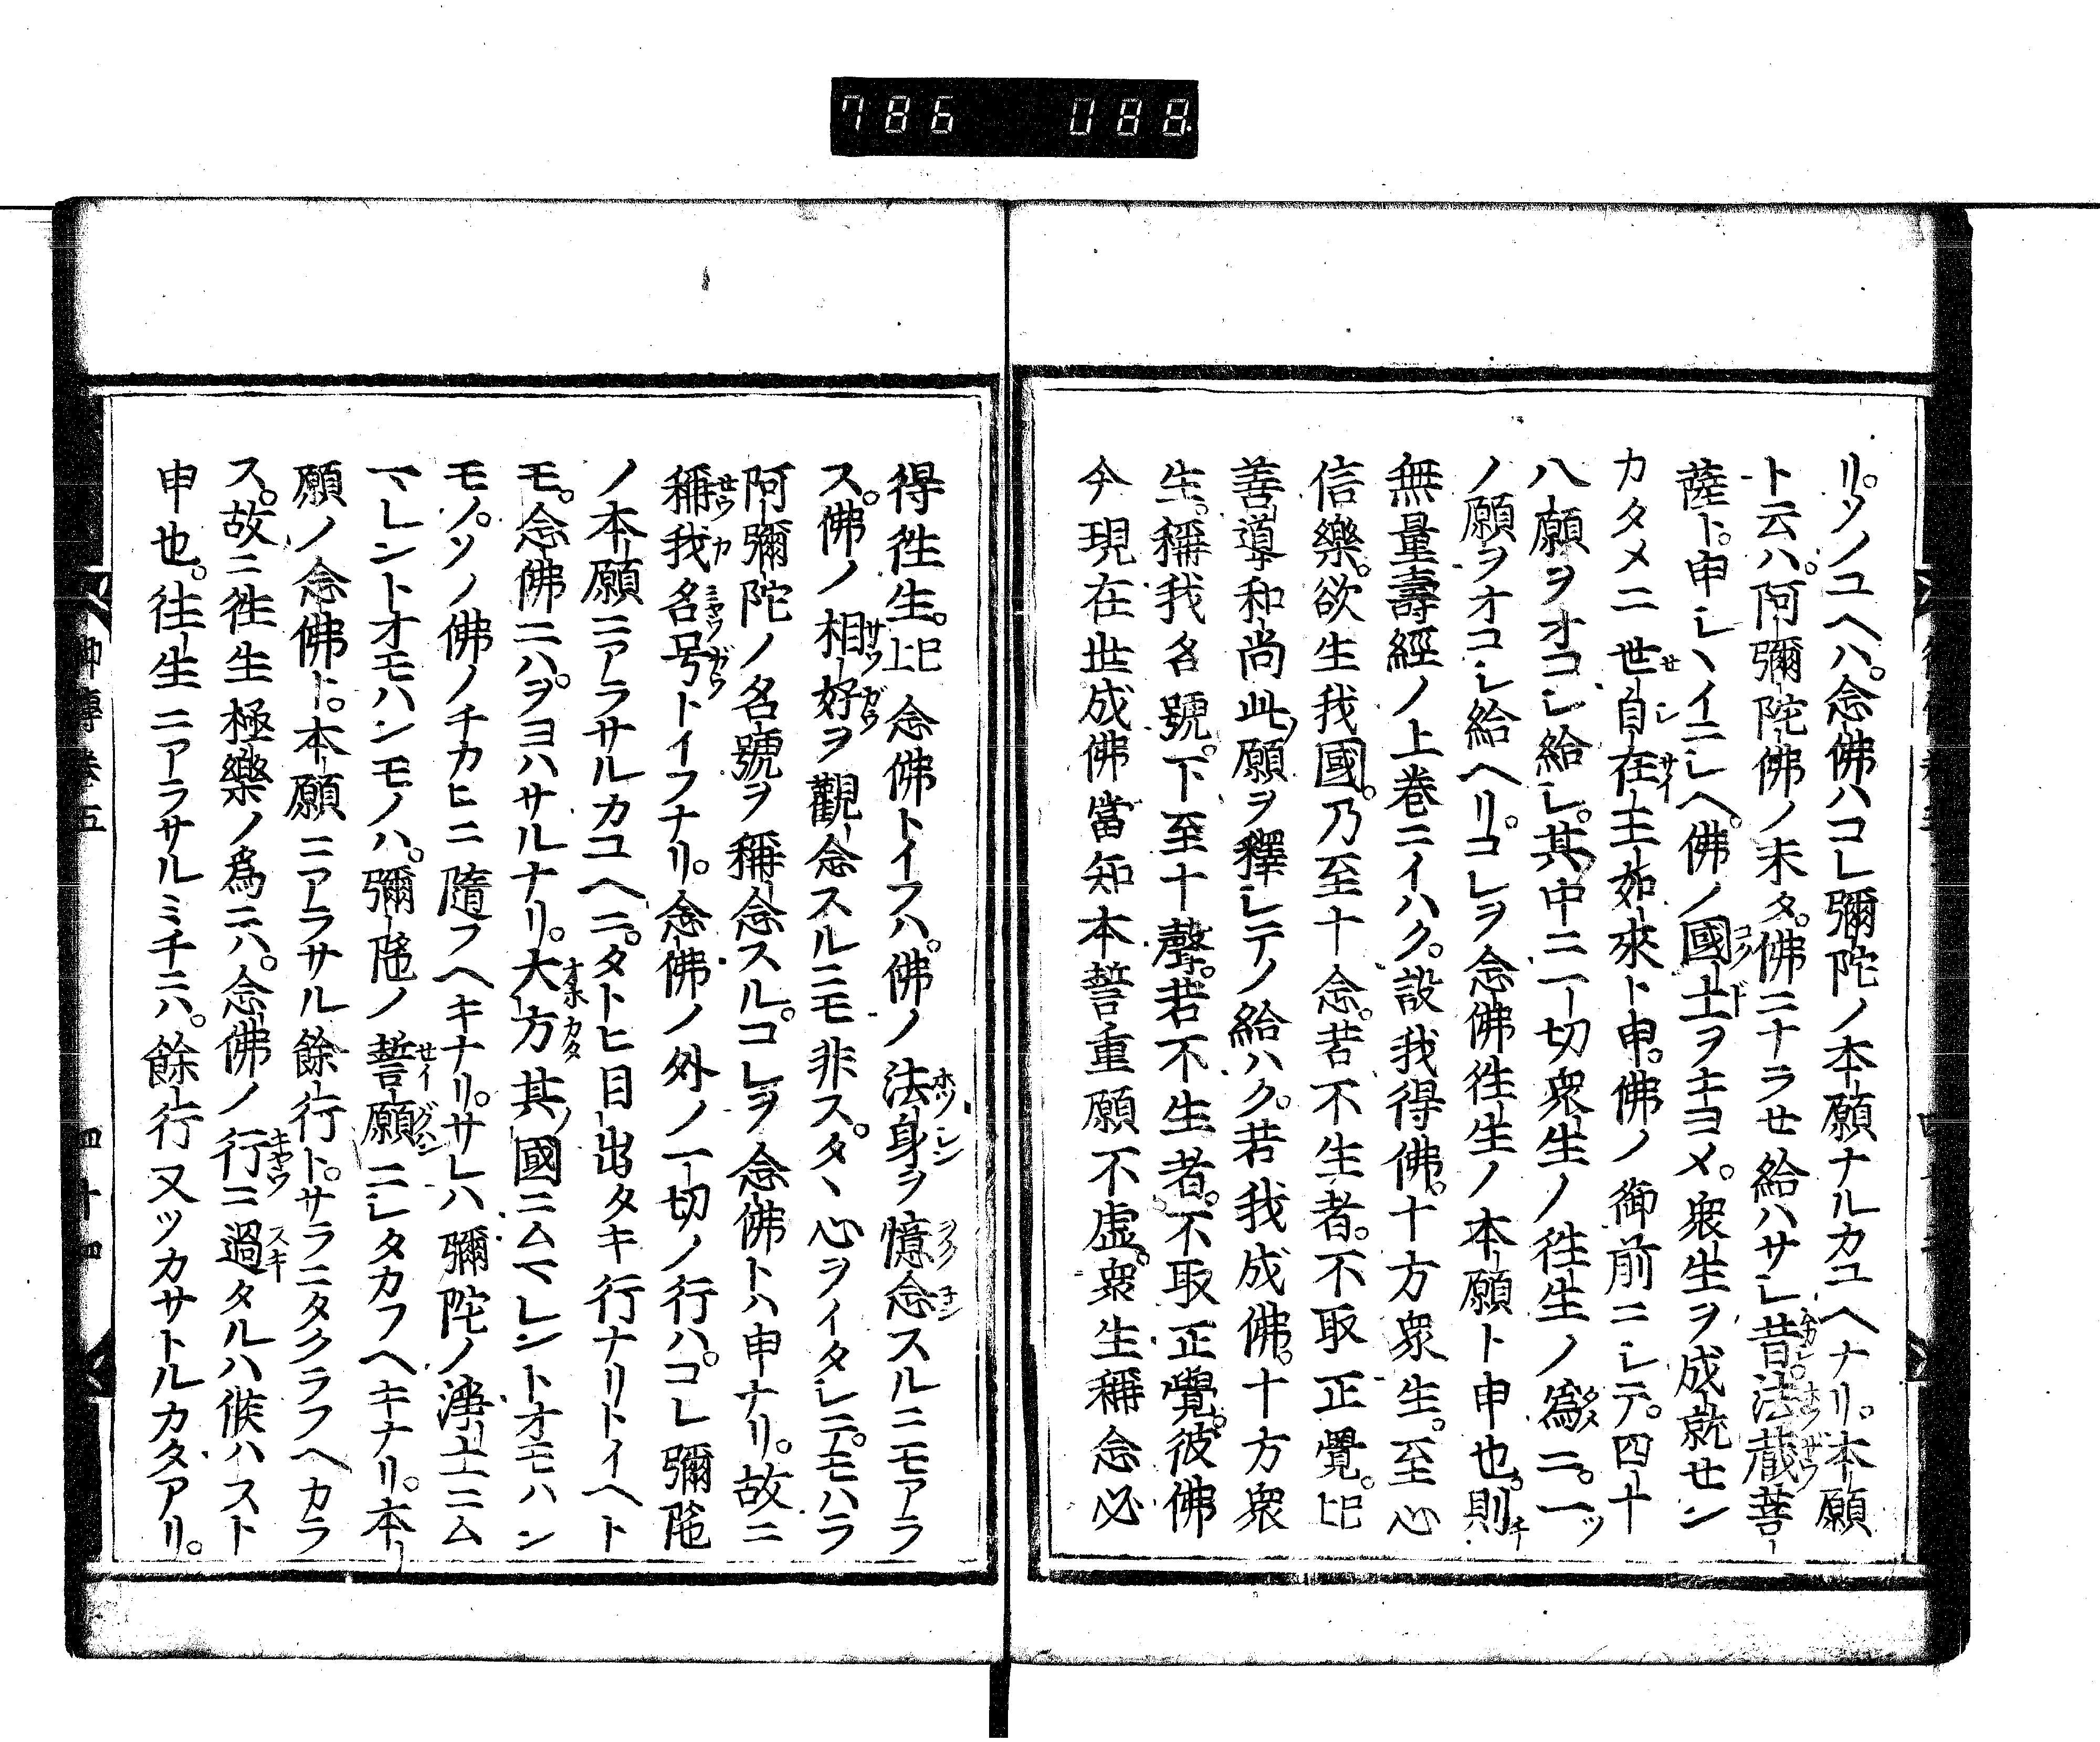 786 088
リ。ソノユヘハ。念佛ハコレ彌陀ノ本願ナルカユヘナリ。本願
ト云ハ。阿彌陀佛ノ未タ。佛ニナラセ給ハサレ昔法藏菩
薩ト。申シヽイニシヘ。佛ノ國土ヲキヨメ。衆生ヲ成就セン
カタメニ世自在王如來ト申。佛ノ御前ニシテ。四十
八願ヲオコシ給シ。其中ニ一切衆生ノ徃生ノ爲ニ。一ツ
ノ願ヲオコシ給ヘリ。コレヲ念佛徃生ノ本願ト申也。則
無量壽經ノ上巻ニイハク。設我得佛。十方衆生。至心
信樂。欲生我國。乃至十念。若不生者。不取正覺。已上
善導和尚此願ヲ釋シテノ給ハク。若我成佛。十方衆
生。稱我名號。下至十聲。若不生者。不取正覺。彼佛
今現在世成佛當知本誓重願不虚。衆生稱念必
得徃生。已上 念佛トイフハ。佛ノ法身ヲ憶念スルニモアラ
ス。佛ノ相好ヲ觀念スルニモ非ス。タヽ心ヲイタシテ。モハラ
阿彌陀ノ名號ヲ稱念スル。コレヲ念佛トハ申ナリ。故ニ
稱我名号トイフナリ。念佛ノ外ノ一切ノ行ハ。コレ彌陀
ノ本願ニアラサルカユヘニ。タトヒ目出タキ行ナリトイヘト
モ。念佛ニハヲヨハサルナリ。大方其國ニムマレントオモハン
モノ。ソノ佛ノチカヒニ隨フヘキナリ。サレハ彌陀ノ淨土ニム
マレントオモハンモノハ。彌陀ノ誓願ニシタカフヘキナリ。本
願ノ念佛ト。本願ニアラサル餘行ト。サラニタクラフヘカラ
ス。故ニ徃生極樂ノ爲ニハ。念佛ノ行ニ過タルハ候ハスト
申也。徃生ニアラサルミチニハ。餘行又ツカサトルカタアリ。
御傳巻五
四十四